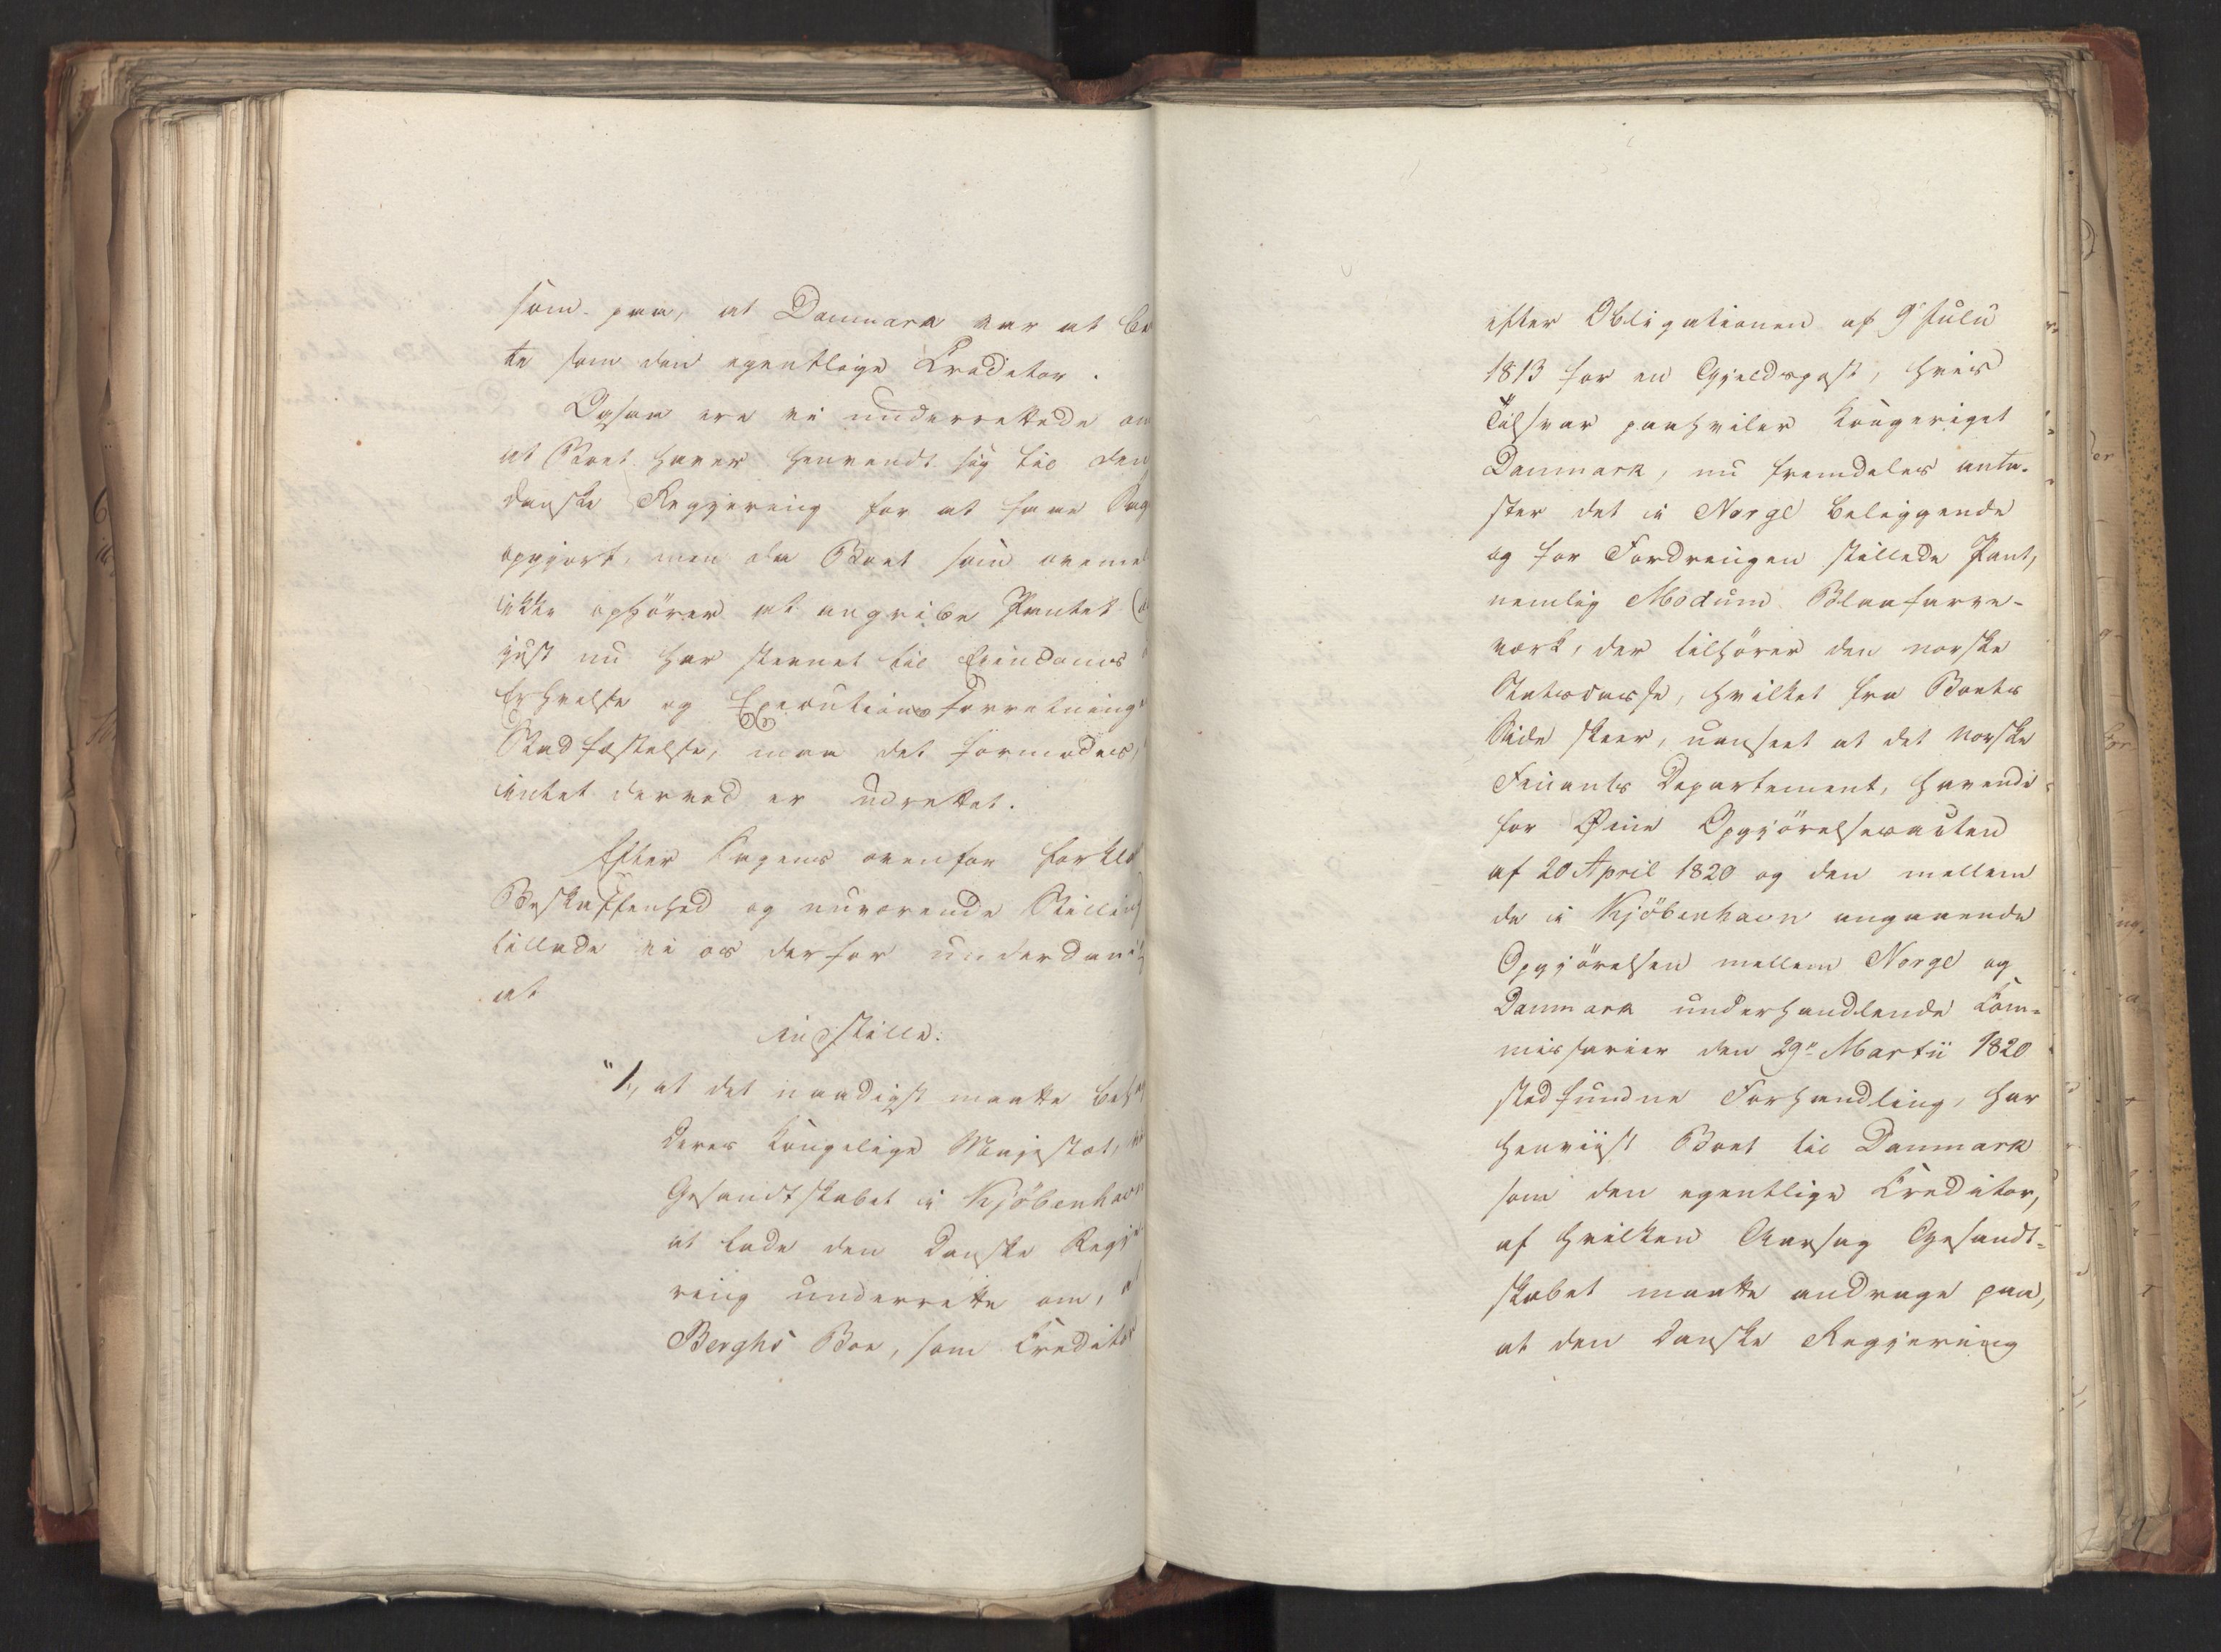 som paa, at Danmark var at be
te som den egentlige Creditor.
Ogsaa ere vi underrettede om
at Boet haver henvendt sig til den
danske Regjering for at faae Sag
opgjort, men da Boet som ovenme
ikke ophører at angribe Pantet (
just nu har stevnet til Eiendoms
Erhvelse og Executions Forretning
Stadfæstelse, maa det formodes,
intet derved er udrettet.
Efter Sagens ovenfor forkla
Beskaffenhed og nuværende Stilling
tillade vi os derfor underdanig
at
indstille:
"1, at det naadigst maatte behag
Deres Kongelige Majestæt,
Gesandtskabet i Kjöbenhavn
at lade den Danske Regje
ring underrette om, at
Berghs Boe, som Creditor
efter Obligationen af 9 Julii
1813 for en Gjeldspost, hvis
Tilsvar paahviler Kongeriget
Danmark, nu fremdeles anta-
ster det i Norge beliggende
og for Fordringen stillede Pant,
nemlig Modum Blaafarve-
værk, der tilhører den norske
Statscasse, hvilket fra Boets
Side skeer, uanseet at det norske
Finants Departement, havende
for Øine Opgjörelsesacten
af 20 April 1820 og den mellem
de i Kjöbenhavn angaaende
Opgjörelsen mellem Norge og
Danmark underhandlende Com-
missarier den 29n Martii 1820
stedfundne Forhandling, har
henviist Boet til Danmark
som den egentlige Creditor,
af hvilken Aarsag Gesandt-
skabet maatte andrage paa,
at den Danske Regjering